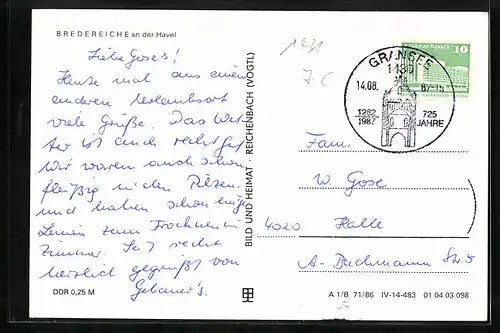 BREDEREICHE an der Havel
Liebe Goses!
Heute mal aus einem
anderen Urlaubsort
viele Grüße. Das Wet-
ter ist auch recht gut
Wir waren auch schon
fleißig in den Pilzen.
und haben schon einige
Leinen zum Trocknen im
Zimmer. Seid recht
herzlich gegrüßt von
Gebauer's.
DDR 0,25 M
BILD UND HEIMAT · REICHENBACH (VOGTL)
GRANSEE
1430
14.08.
87-15
1262
1987
725
JAHRE
10
Fam.
W. Gose
4020 Halle
A-Bachmann Str. 5
A 1/B 71/86 IV-14-483 01 04 03 098